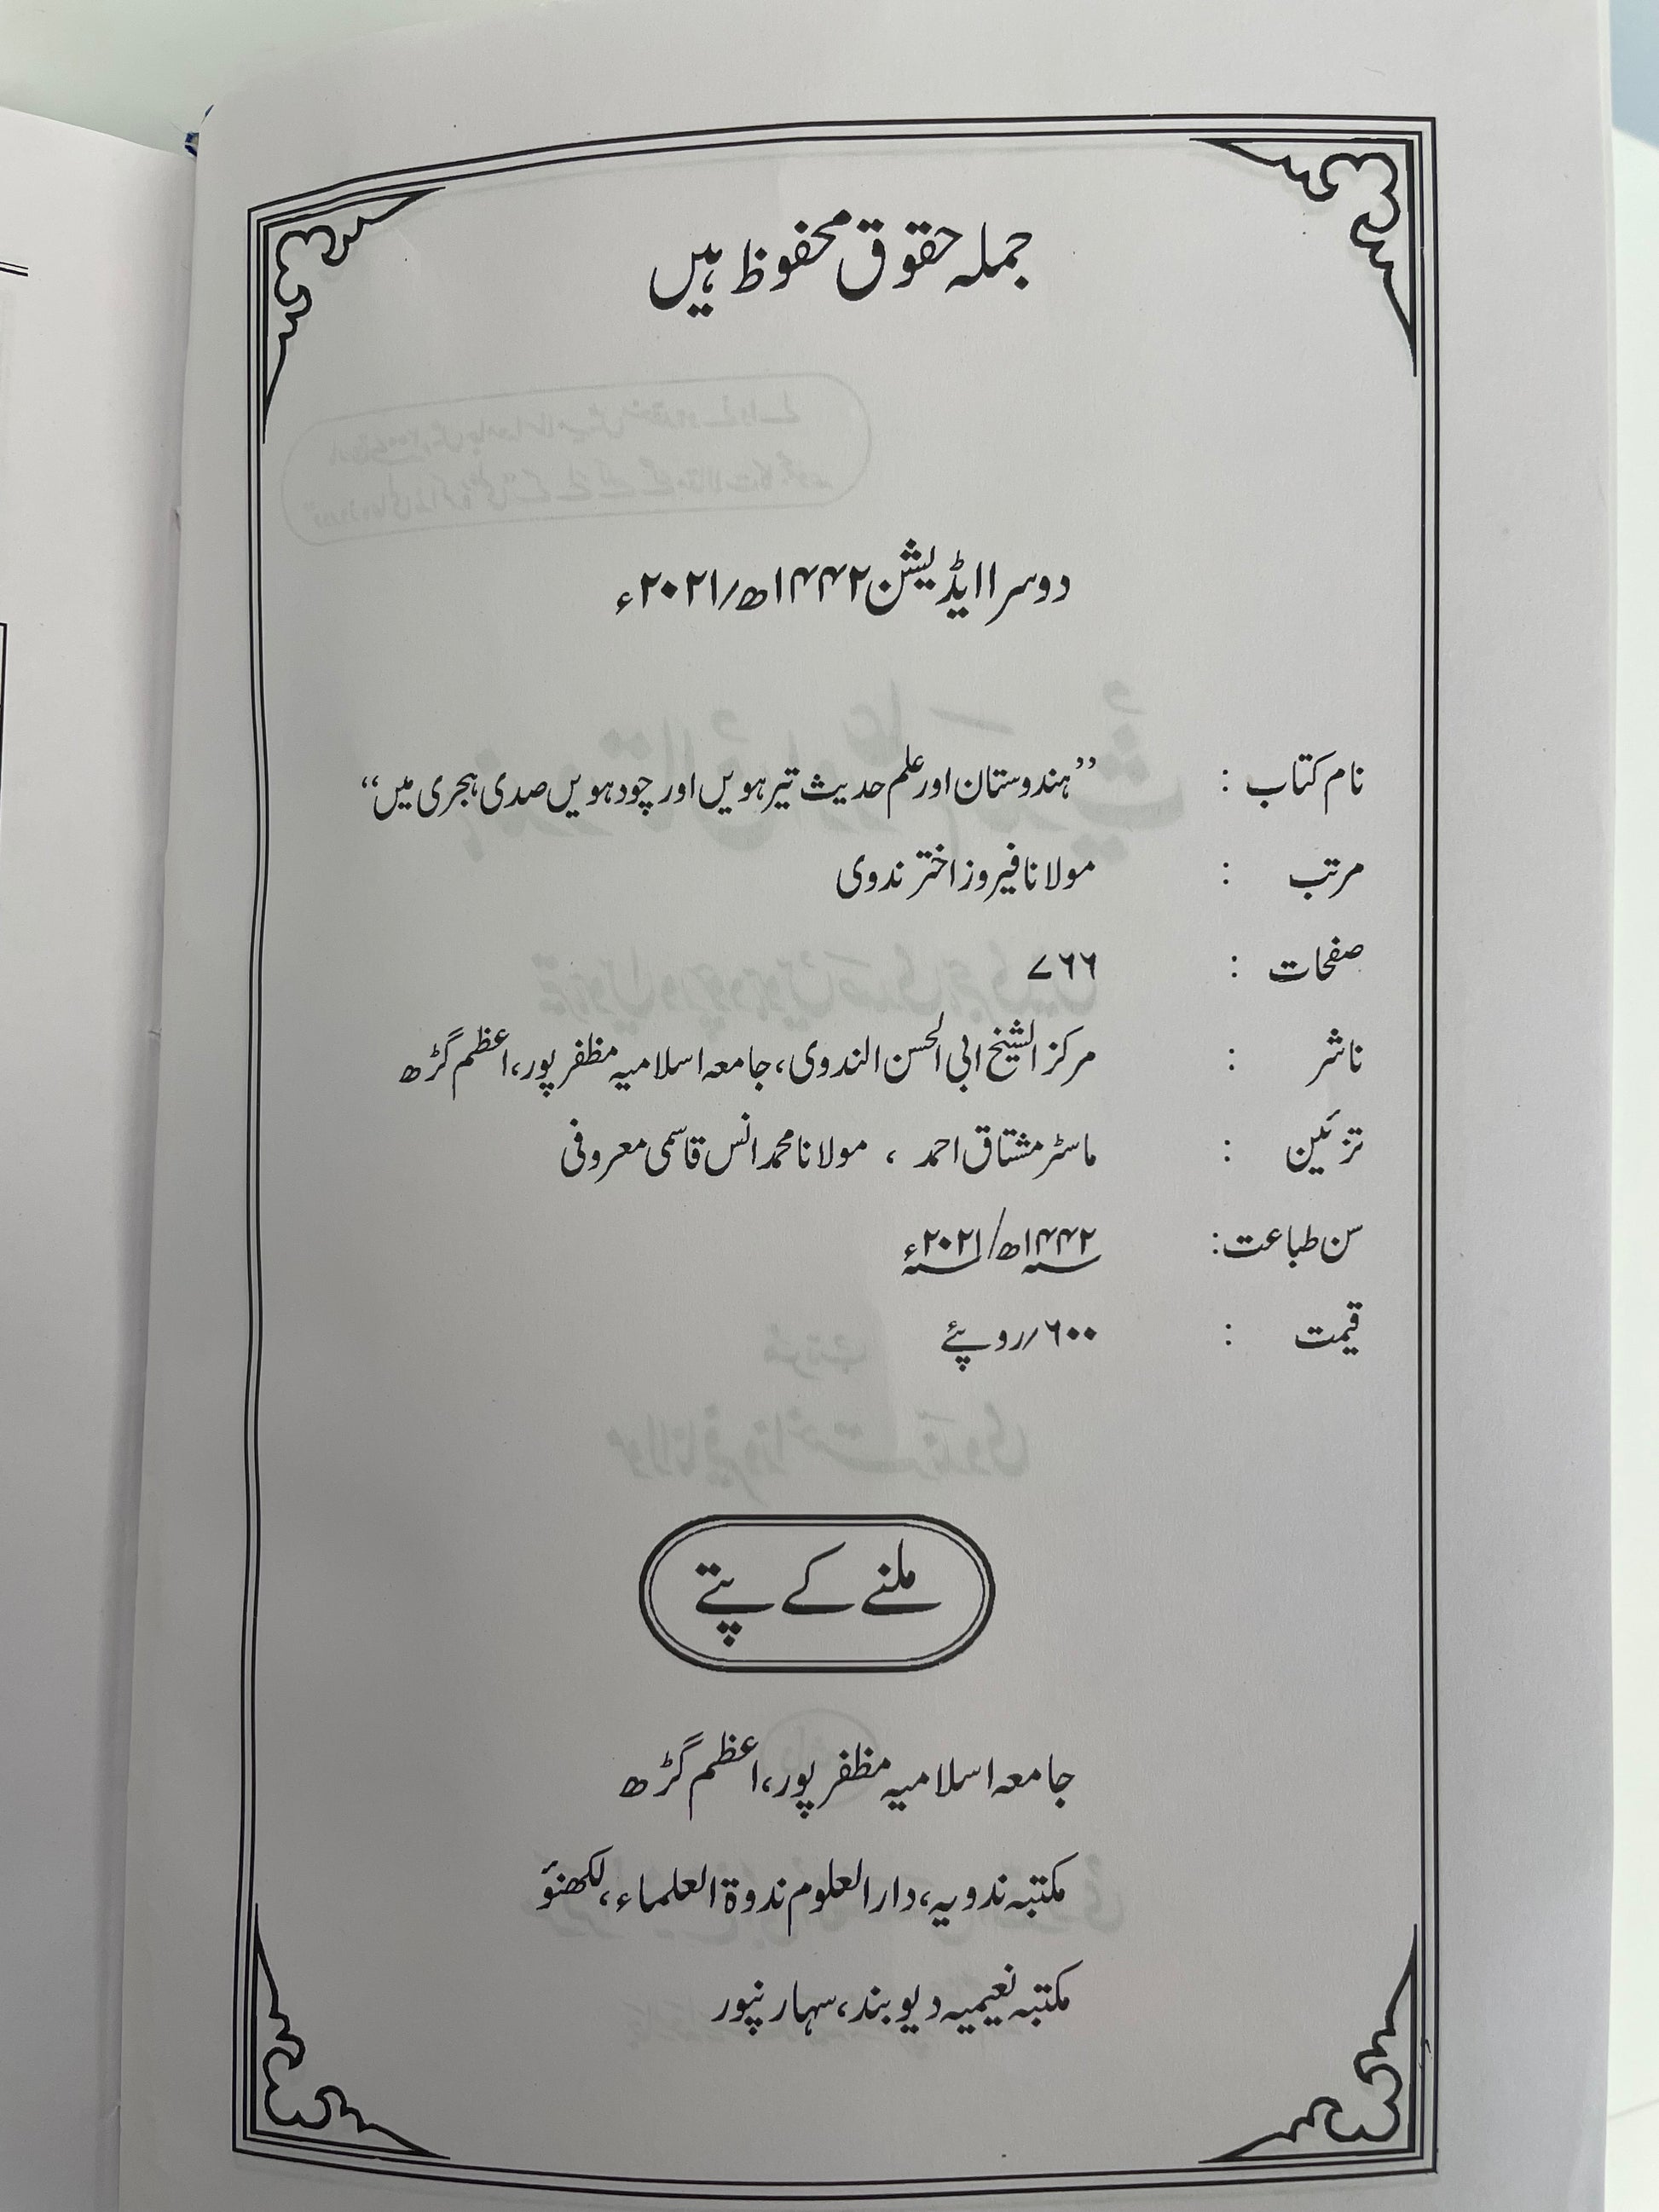 جملہ حقوق محفوظ ہیں
دوسرا ایڈیشن ۱۴۴۲ھ/۲۰۲۱ء
نام کتاب : ”ہندوستان اور علم حدیث تیرہویں اور چودہویں صدی ہجری میں“
مرتب : مولانا فیروز اختر ندوی
صفحات : ۷۶۶
ناشر : مرکز الشیخ ابی الحسن الندوی، جامعہ اسلامیہ مظفر پور، اعظم گڑھ
تزئین : ماسٹر مشتاق احمد ، مولانا محمد انس قاسمی معروفی
سن طباعت: ۱۴۴۲ھ/۲۰۲۱ء
قیمت : ۶۰۰/روپئے
ملنے کے پتے
جامعہ اسلامیہ مظفر پور، اعظم گڑھ
مکتبہ ندویہ، دارالعلوم ندوۃ العلماء، لکھنؤ
مکتبہ نعیمیہ دیوبند، سہارنپور